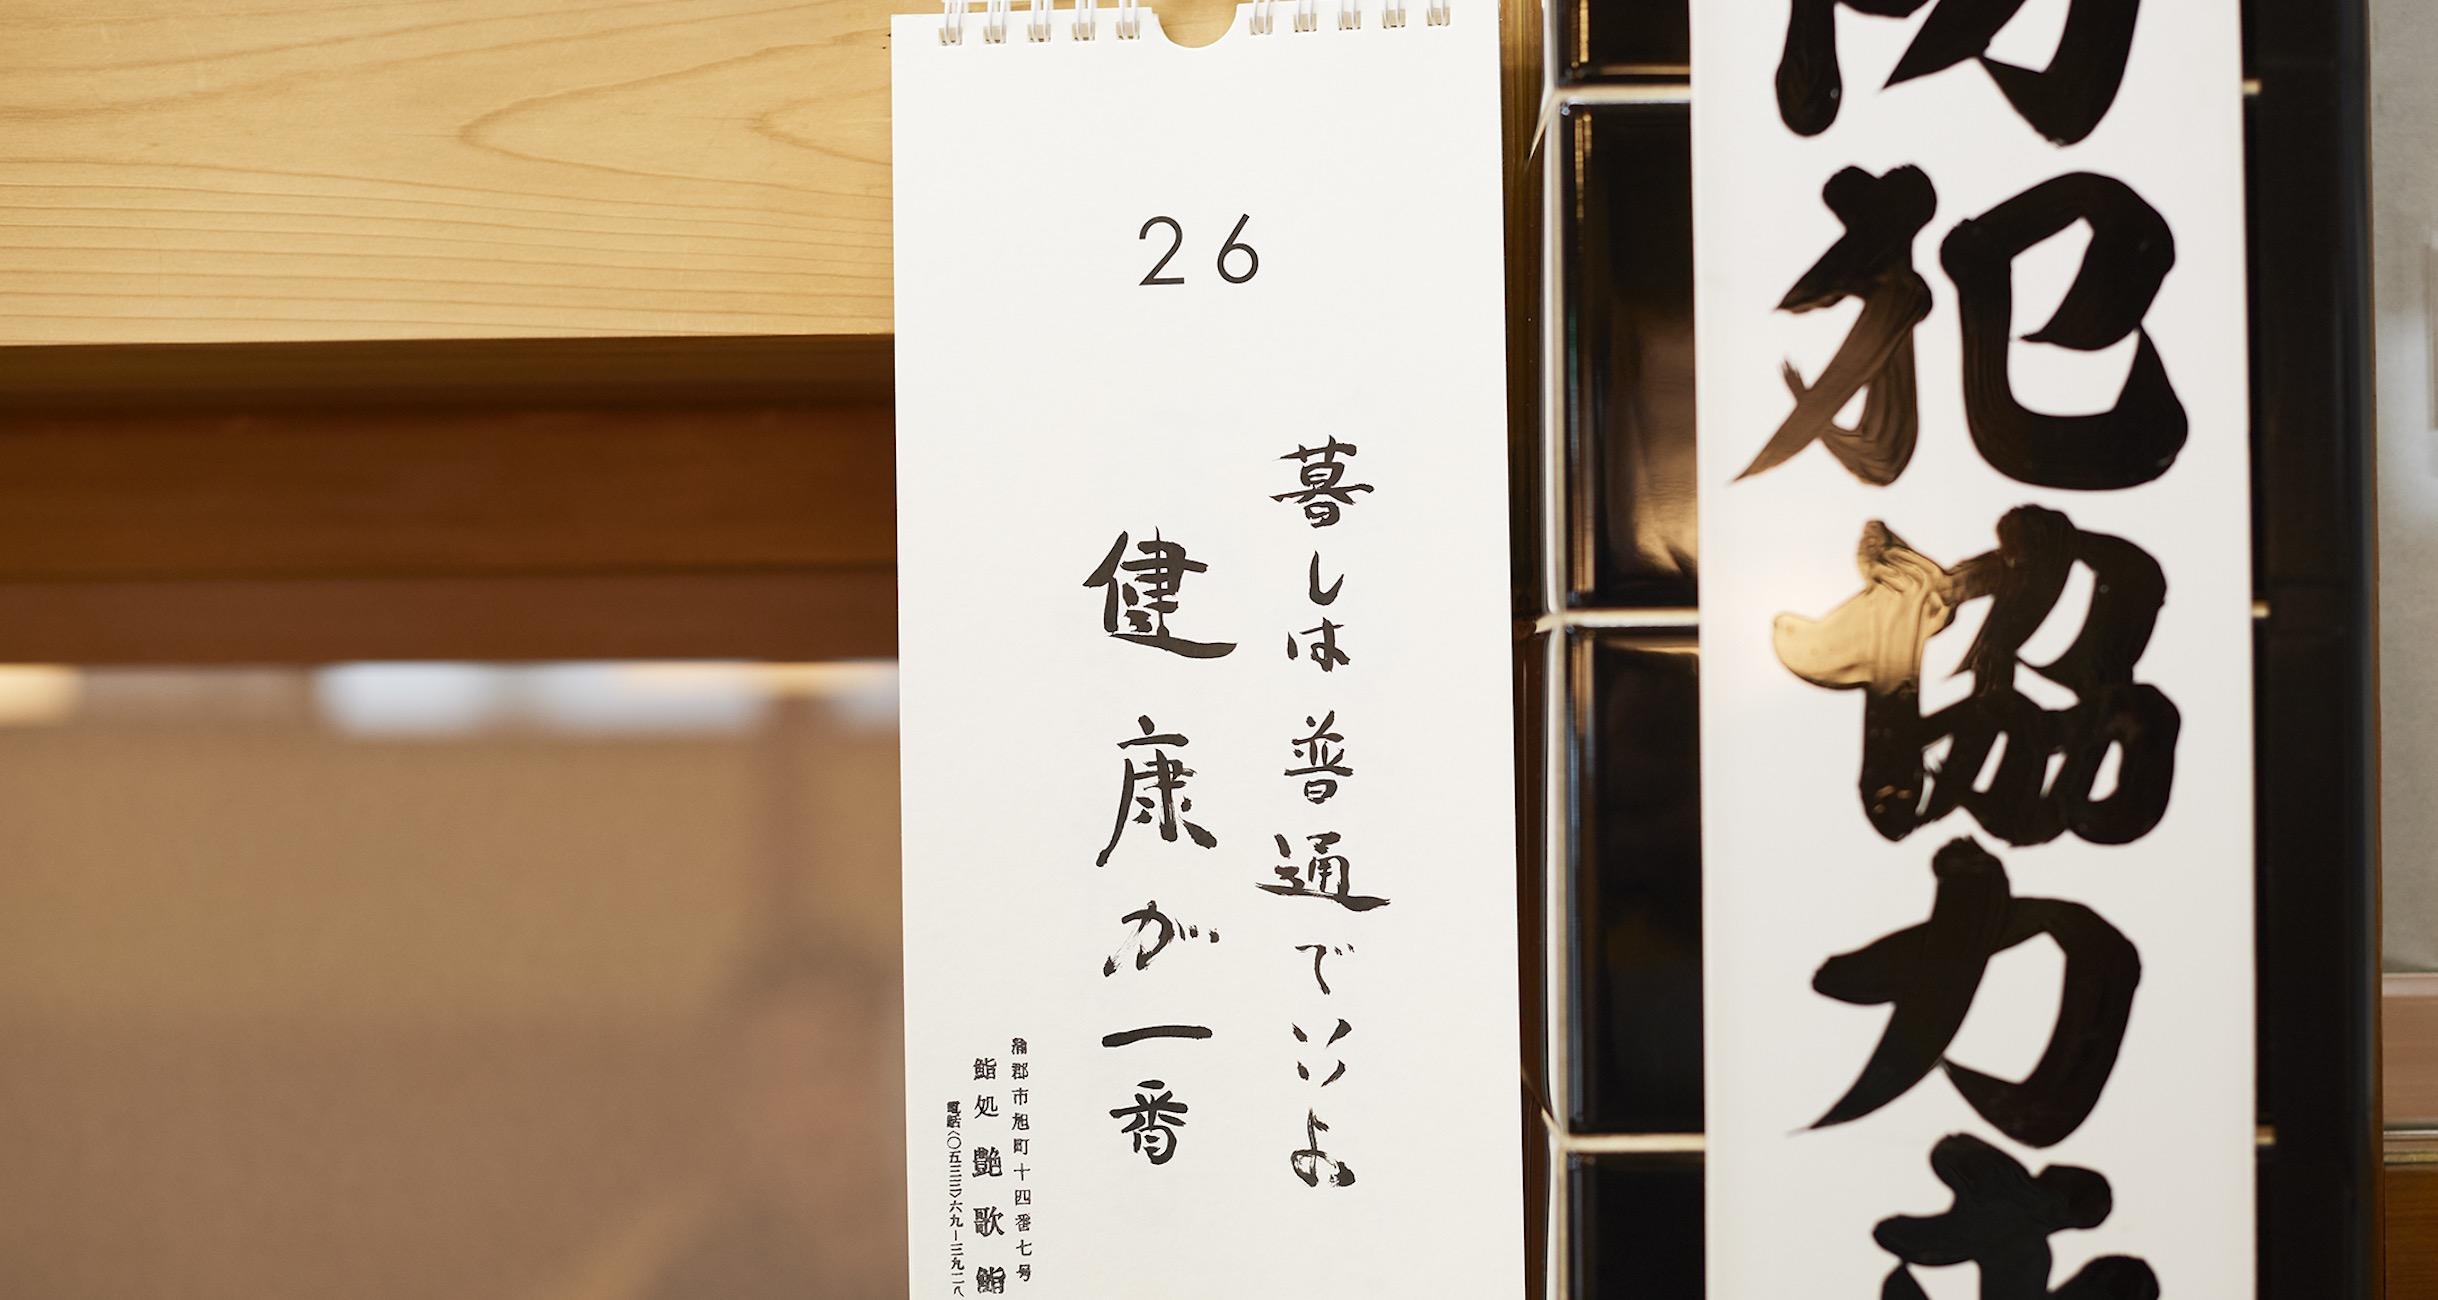 防犯協力店
26
暮しは普通でいいよ
健康が一番
蒲郡市旭町十四番七号
鮨処 艶歌鮨
電話〈〇五三三〉六九ー三九二八